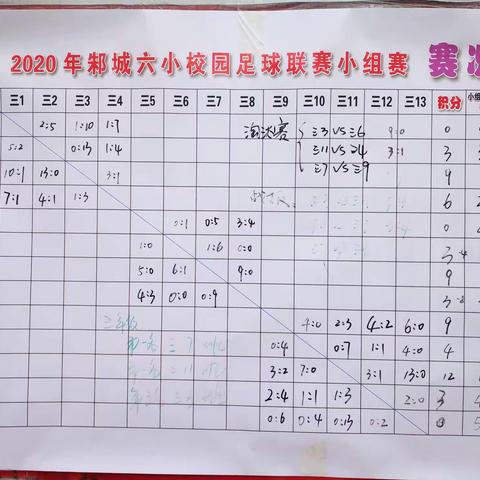 2020年邾城六小校园足球联赛小组赛 赛
三1 三2 三3 三4 三5 三6 三7 三8 三9 三10 三11 三12 三13 积分 小组
2:5 1:10 1:7 淘汰赛 三3 VS 三6 9:0 0
5:2 0:13 1:4 三11 VS 三4 3:1 3
10:1 13:0 3:1 三7 VS 三9 9
7:1 4:1 1:3 6 2
0:1 0:5 3:4 0
1:0 1:6 0:0
5:0 6:1 9:0 9
4:3 0:0 0:9
三年级 4:0 2:3 4:2 6:0 9
0:4 0:7 1:1 4:0 4
3:2 7:0 3:1 13:0 12
2:4 1:1 1:3 2:0
0:6 0:4 0:13 0:2